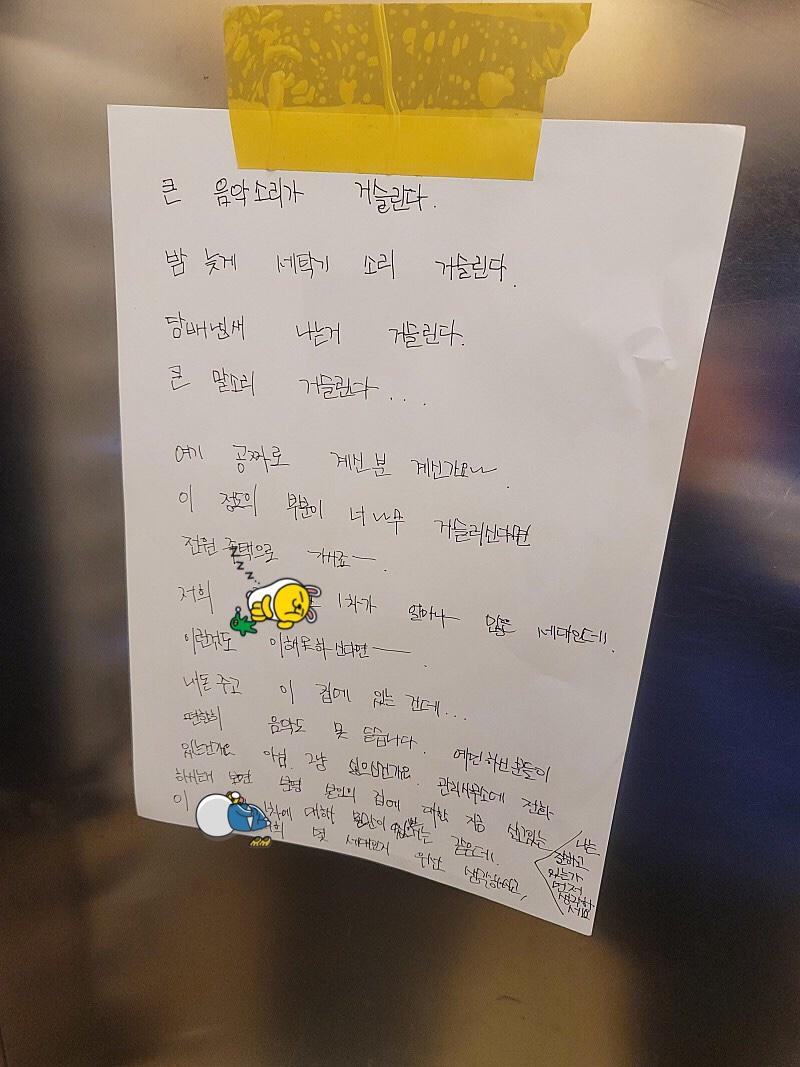 큰 음악소리가 거슬린다.
밤 늦게 세탁기 소리 거슬린다.
담배냄새 나는거 거슬린다.
큰 말소리 거슬린다...
여기 공짜로 계신분 계신가요~.
이 정도의 부분이 너~나무 거슬리신다면
전원 주택으로 가시죠—.
저희 1차가 얼마나 많은 세대인데
이런것도 이해못하신다면—.
내돈 주고 이 집에 있는 건데...
편하게 음악도 못 듣습니다. 예민하신분들이
있는건가요 아님. 그냥 싫으신건가요.
관리사무소에 전화
하시는데 보면 본인의 집에 대한 지금
이 차에 대해 같은데.
몇 세대인지 우선 생각하시고,
나는
잘하고
있는가
먼저
생각하
세요